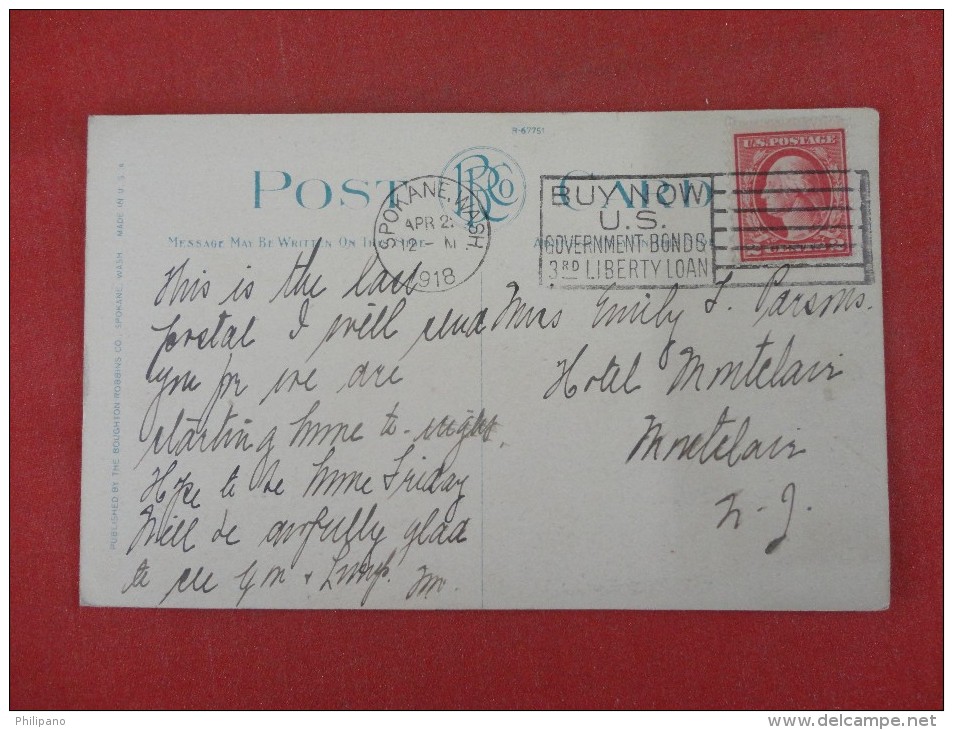 R-67751
POST CARD
BRCo
MESSAGE MAY BE WRITTEN ON
SPOKANE, WASH
APR 2
12 - M
1918
BUY NOW
U.S.
GOVERNMENT BONDS
3RD LIBERTY LOAN
U.S. POSTAGE
2 CENTS 2
This is the last
postal I will send
you for we are
starting home to-night.
Hope to be home Friday
Will be awfully glad
to see you +
Mrs Emily F. Parsons.
Hotel Montclair
Montclair
N. J.
PUBLISHED BY THE BOUGHTON ROBBINS CO., SPOKANE, WASH MADE IN U.S.A
Philipano
www.delcampe.net